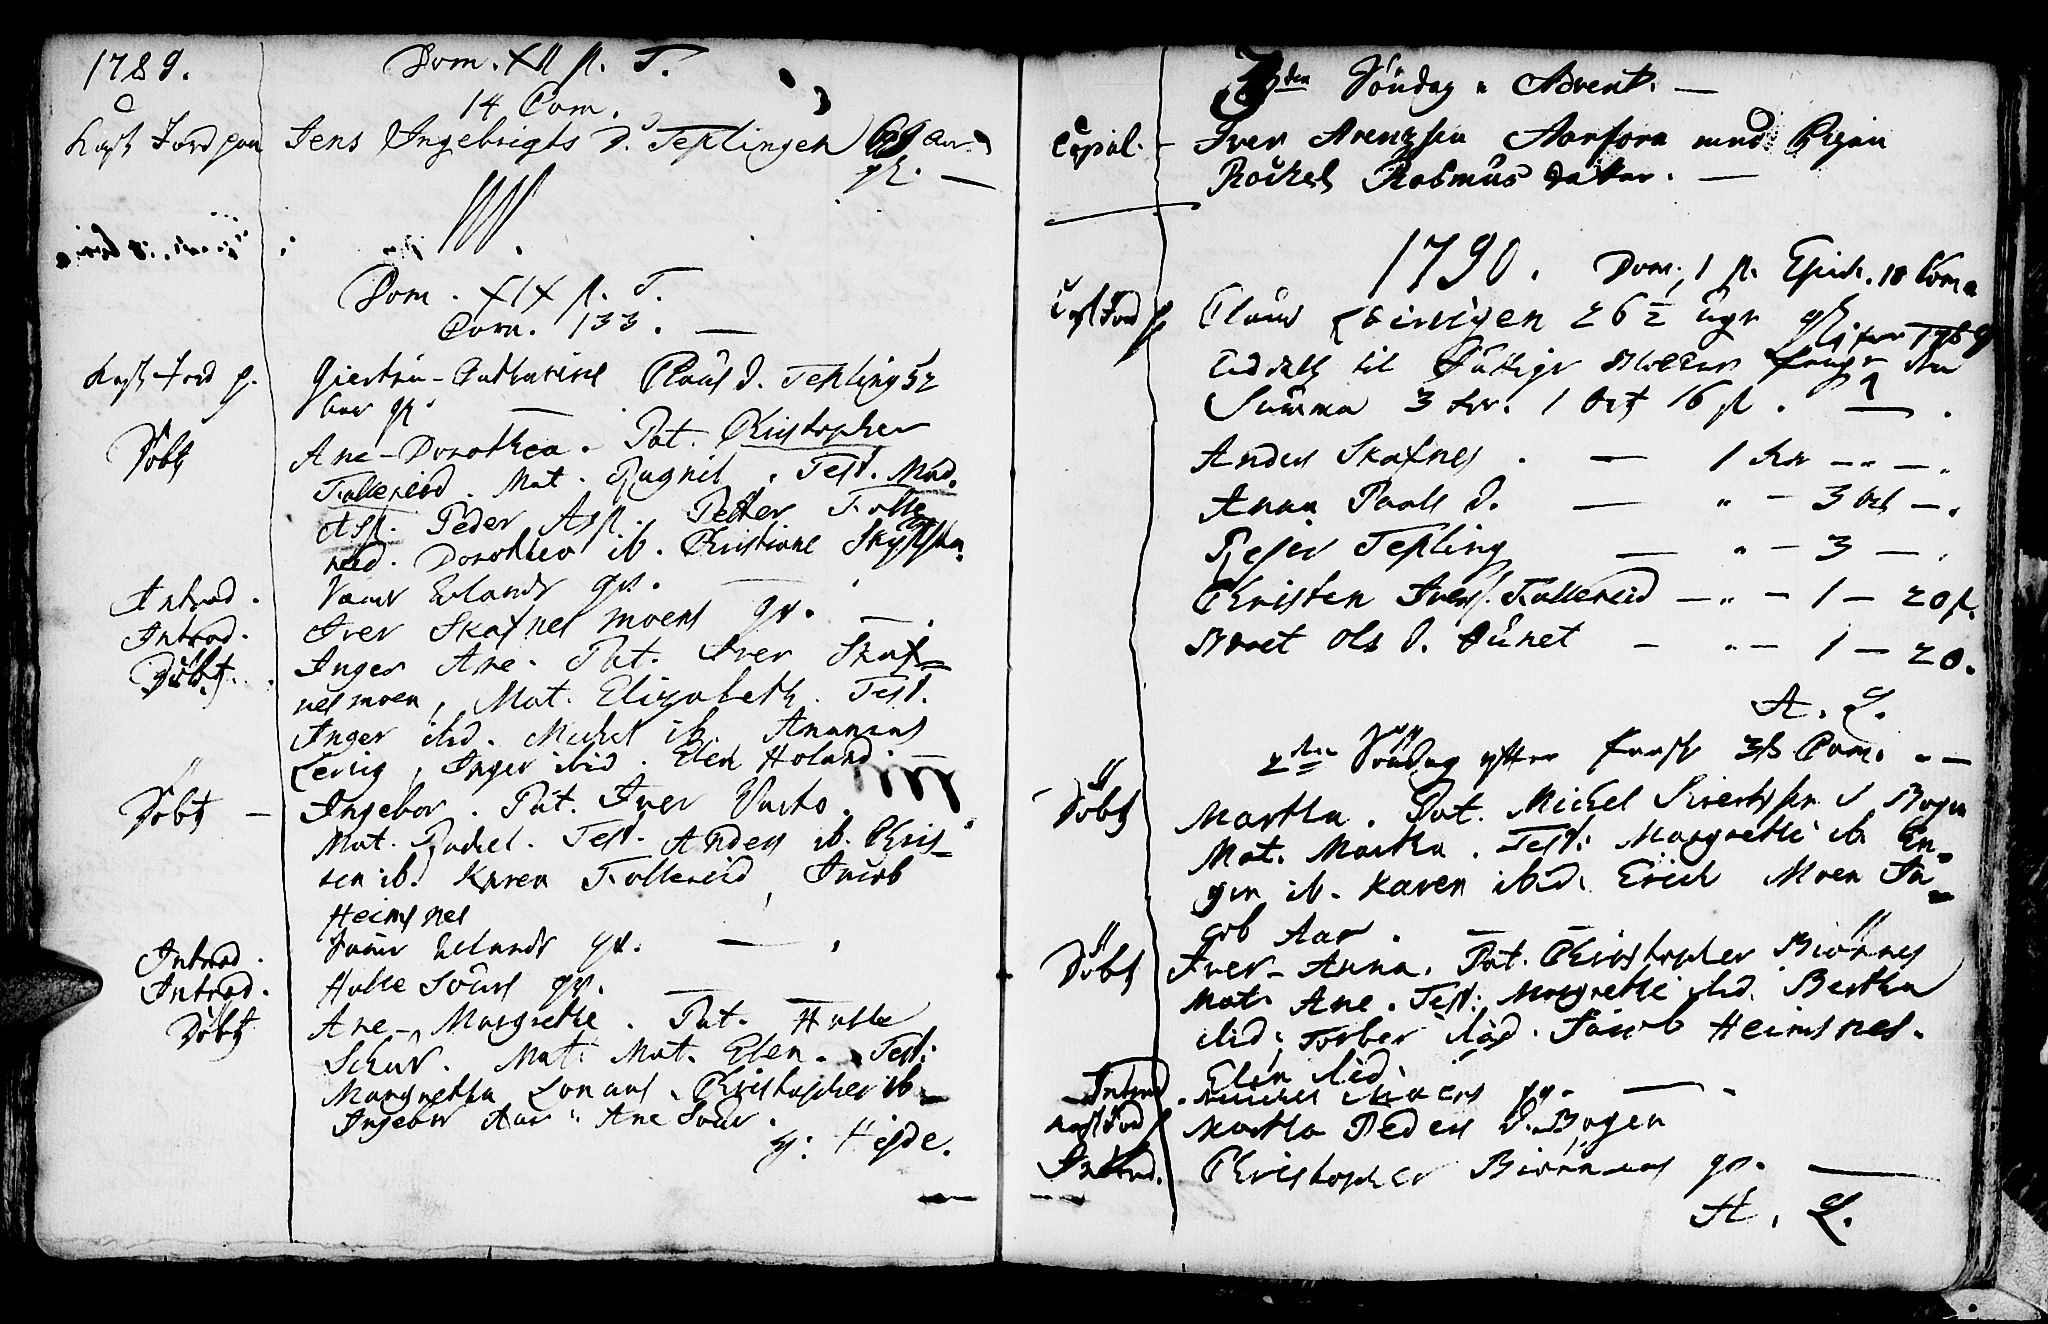 1789.
Dom. XII p. T.
14 Com.
Kast Jord paa Jens Ingebrigts D. Teplingen 69 aar
gl. —
Dom. XIX p. T.
Com. 133. —
Kast Jord p. Giertru-Catharine Claus D. Tepling 52
aar gl. —
Döbt Ane-Dorothea. Pat. Christopher
Follereid. Mat. Ragnil. Test. Mad.
Asp. Peder Asp. Petter Folle
reid. Dorothea ib. Christiane
Introd. Erlands qv. —
Introd. Iver Skafnes moens qv. —
Döbt. Inger Ane. Pat. Iver Skaf=
nesmoen, Mat. Elizabeth. Test.
Inger ibid. Michel ib. Ananias
Leirig, Inger ibid. Elen Holand. —
Döbt — Ingebor. Pat. Iver
Mat. Rachel. Test. Anders ib. Chris=
ten ib. Karen Follereid, Jacob
Heimsnes
Introd. Erlands qv. —
Introd. Halle Souls qv. —
Döbt Ane-Margrethe. Pat. Halle
Mat: Mat. Elen. Test:
Margretha Christopher ib.
Ingebor Aar. Ane
H: Heide.
3den Söndag i Advent. —
Copul. — Iver Arentzen Aarfora med Pigen
Rachel Rasmus datter. —
1790. Dom. 1 p. Epiph. 18 Com.
Kast Jord p Claus Leirvigen 26½ Uger gl.
for 1789
Uddeelt til Fattige
Summa 3 1 Ort 16 s. —
Anders Skafnes. — 1 — " — "
Anna Povls D. — " — 3 Ort —.
Tepling — " — 3 —.
Christen Ivers. Follereid — " — 1 — 20 s.
Beret Ols D. Junet — " — 1 — 20.
A. L.
2den Söndag efter 36 Com. —
Döbt Martha. Pat. Michel Sivertsen i Bogen
Mat. Martha. Test: Margrethe ib. In=
ger ib. Karen ibid. Erich Moen Ja=
cob Aar. —
Döbt Iver-Anna. Pat. Christopher Biörnes
Mat. Ane. Test: Margrethe ibid. Bertha
ibid; Torber ibid. Jacob Heimsnes.
Elen ibid.
Introd. Michel qv. —
Kast Jord p Martha Peders D. Bogen
Introd. Christopher Biörnnes qv. —
A. L.